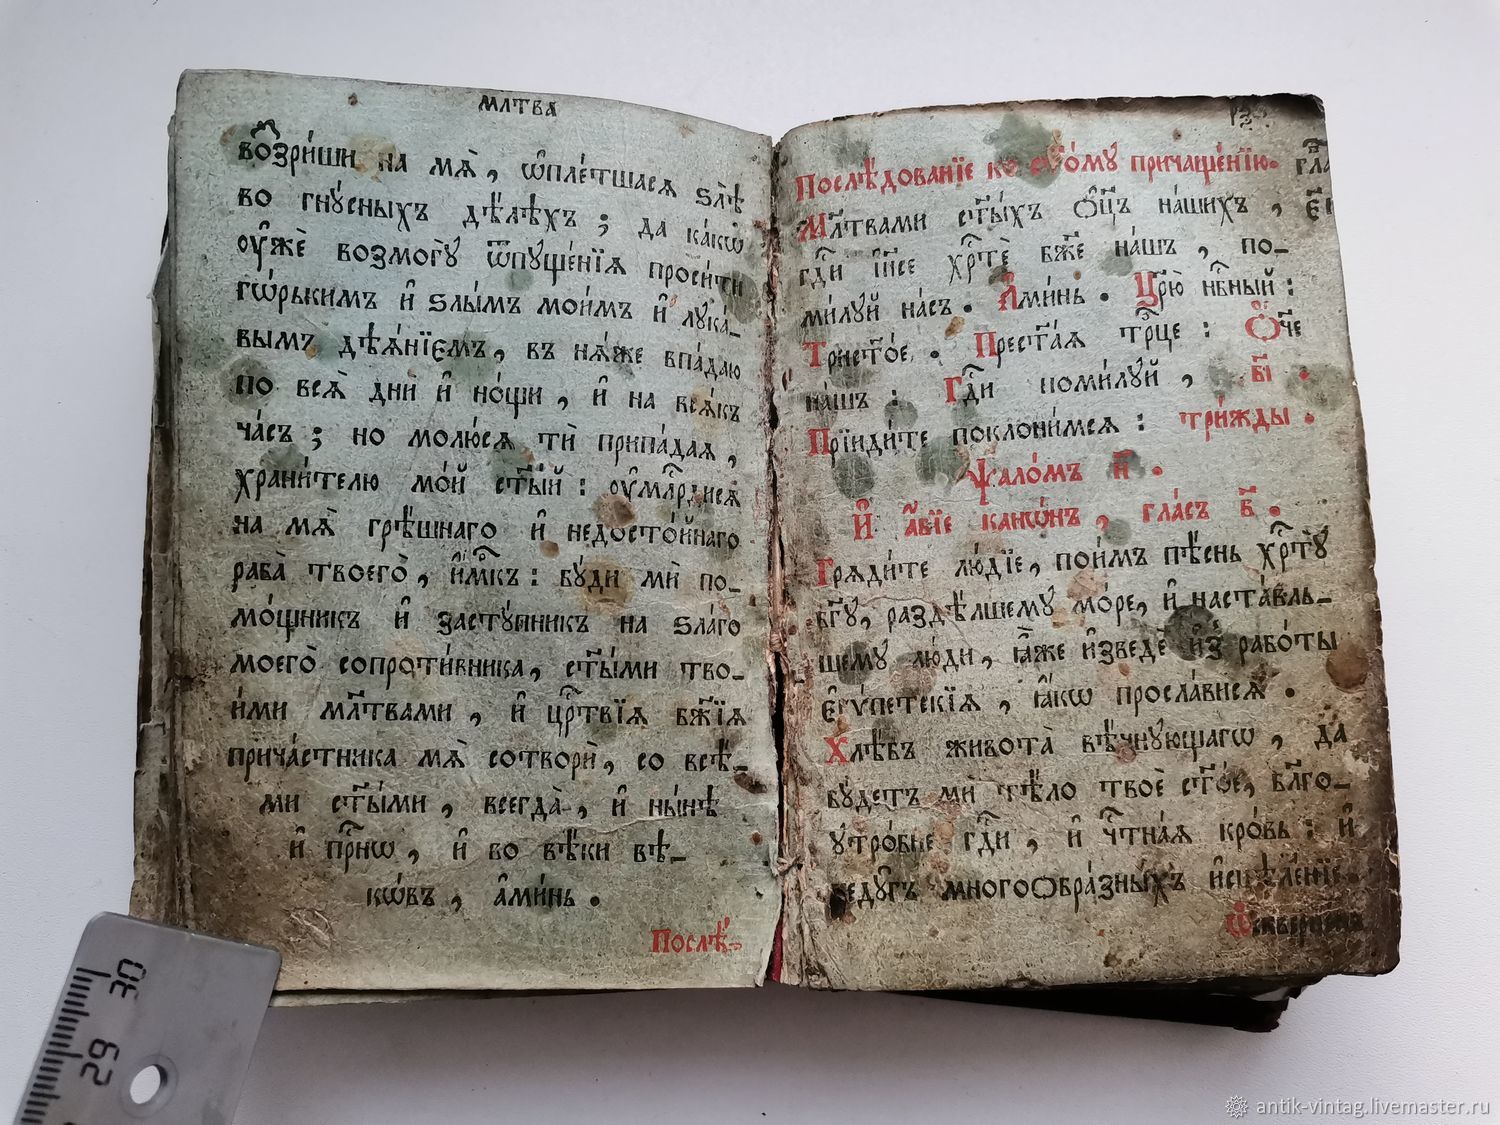 МЛТВА
воззри́ши на мѧ̀, ѡ҆пле́тшаесѧ ѕлѣ̀
во гнꙋ́сныхъ дѣ́лѣхъ ; да ка́кѡ
ᲂу҆́же возмогꙋ̀ ѿпꙋще́нїѧ проси́ти
гѡ́рькимъ и҆ ѕлы́мъ мои́мъ и҆ лꙋка́-
вымъ дѣѧ́нїємъ, въ нѧ́же впа́даю
по всѧ̀ дни и҆ но́щи , и҆ на всѧ́къ
ча́съ ; но молю́сѧ тѝ припа́даѧ ,
храни́телю мо́й ст҃ы́й : ᲂу҆млⷭ҇рдисѧ
на мѧ̀ грѣ́шнаго и҆ недосто́йнаго
раба̀ твоегѡ̀ , и҆́мⷬ҇къ : бꙋ́ди мѝ по-
мо́щникъ и҆ застꙋ́пникъ на ѕла́го
моего̀ сопроти́вника , ст҃ы́ми тво-
и́ми мл҃твами , и҆ црⷭ҇твїѧ бж҃їѧ
прича́стника мѧ̀ сотворѝ , со всѣ́-
ми ст҃ы́ми , всегда̀ , и҆ ны́нѣ
и҆ прⷭ҇нѡ , и҆ во вѣ́ки вѣ-
кѡ́въ , а҆ми́нь .
Послѣ́-
Послѣ́дованїе ко ст҃о́мꙋ причаще́нїю.
Мл҃твами ст҃ы́хъ ѻ҆ц҃ъ на́шихъ ,
гдⷭ҇и і҆и҃се хрⷭ҇тѐ бж҃е на́шъ , по-
ми́лꙋй на́съ . А҆ми́нь . Цр҃ю̀ нбⷭ҇ный :
Трист҃о́е . Прест҃а́ѧ трⷪ҇це : Ѻ҆́ч҃е
на́шъ : Гдⷭ҇и поми́лꙋй , в҃і .
Прїиди́те поклони́мсѧ : три́жды .
Ѱало́мъ н҃ .
И҆ а҆́бїе кано́нъ , гла́съ в҃ .
Грѧди́те лю́дїе , пои́мъ пѣ́снь хрⷭ҇тꙋ̀
бг҃ꙋ , раздѣ́лшемꙋ мо́ре , и҆ наста́вль-
шемꙋ лю́ди , ꙗ҆̀же и҆зведѐ и҆з̾ рабо́ты
є҆гѵ́петскїѧ , ꙗ҆́кѡ просла́висѧ .
Хлѣ́бъ живота̀ вѣ́чнꙋющагѡ , да
бꙋ́детъ мѝ тѣ́ло твоѐ ст҃о́е , бл҃го-
ꙋтро́бне гдⷭ҇и , и҆ чⷭ҇тна́ѧ кро́вь : и҆
недꙋ́гъ многоѻбра́зныхъ и҆сцѣле́нїе.
Ѡ҆скверне́нъ
30
29
antik-vintag.livemaster.ru